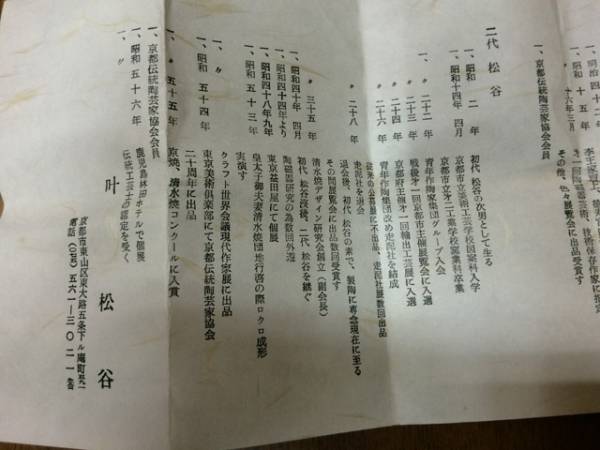 一、京都伝統陶芸家協会会員
二代 松谷
一、昭和 二 年 初代 松谷の次男として生る
一、昭和十四年 四月 京都市立美術工芸学校図案科入学
京都市立第二工業学校窯業科卒業
一、〃 二十二年 青年作陶家集団グループ入会
〃 二十三年 戦後第一回京都市主催展覧会に入選
〃 二十四年 京都府主催第一回輸出工芸展に入選
〃 二十六年 青年作陶集団改め走泥社を結成
従来の公募展に不出品、走泥社展数回出品
〃 二十八年 走泥社を退会
退会後、初代 松谷の業で、製陶に専念現在に至る
その間展覧会に出品数回受賞す
〃 三十五年 清水焼デザイン研究会創立(副会長)
一、昭和四十年 四月 初代 松谷没後、二代 松谷を継ぐ
一、昭和四十四年より 陶磁器研究の為数回外遊
一、昭和四十八年九年 東京益田屋にて個展
一、昭和 五十三 年 皇太子御夫妻清水焼団地行啓の際ロクロ成形
実演す
クラフト世界会議現代作家展に出品
一、昭和 五十四 年 東京美術倶楽部にて京都伝統陶芸家協会
二十周年に出品
一、〃 五十五 年 京焼、清水焼コンクールに入賞
一、京都伝統陶芸家協会会員
一、昭和 五十六 年 鹿児島林田ホテルで個展
一、〃 伝統工芸士の認定を受く
叶 松 谷
京都市東山区東大路五条下ル
電話(〇七五)五六一―三〇二一番